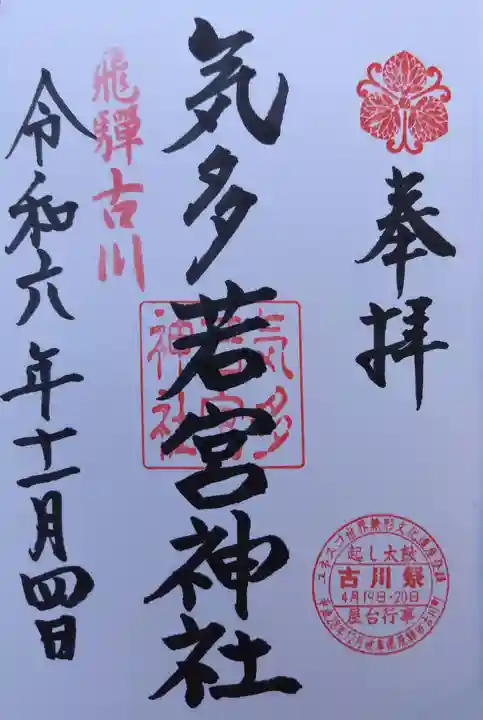 奉拝
気多若宮神社
気多
若宮
神社
飛驒古川
令和六年十一月四日
ユネスコ世界無形文化遺産登録
起し太鼓
古川祭
4月19日・20日
屋台行事